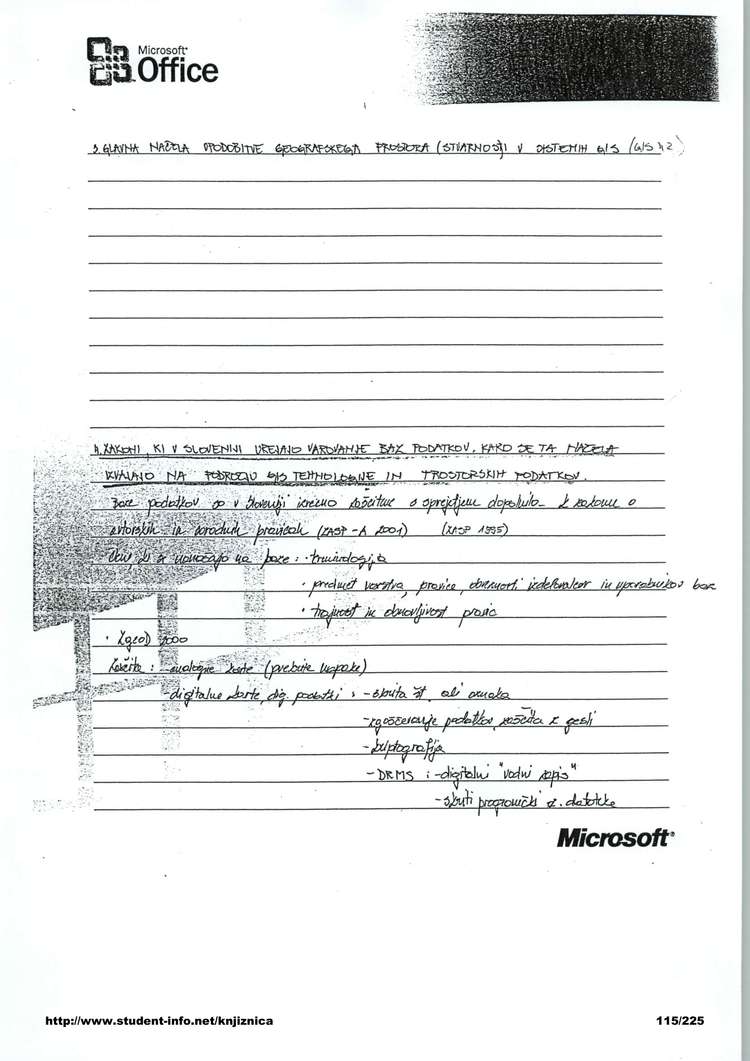 Microsoft®
Office
3. GLAVNA NAČELA UPODOBITVE GEOGRAFSKEGA PROSTORA (STVARNOSTI) V SISTEMIH GIS (GIS 4,2)
4. ZAKONI, KI V SLOVENIJI UREJAJO VAROVANJE BAZ PODATKOV, KAKO SE TA NAČELA
NA PODROČJU GIS TEHNOLOGIJE IN PROSTORSKIH PODATKOV.
Baze podatkov so v Sloveniji izrecno zaščitene s sprejetjem dopolnila k zakonu o
avtorskih in sorodnih pravicah (ZASP-A 2001) (ZASP 1995)
Členi, ki se nanašajo na baze: · terminologija
· predmet varstva, pravice, obveznosti izdelovalcev in uporabnikov baz
· trajnost in obnovljivost pravic
· ZgeoD 2000
Zaščita: - analogne karte (prebite napake)
- digitalne karte, dig. podatki: - skrita št. ali oznaka
- zgoščevanje podatkov, zaščita z gesli
- kriptografija
- DRMS: - digitalni "vodni zapis"
- skriti programčki z. datoteke
Microsoft®
http://www.student-info.net/knjiznica
115/225